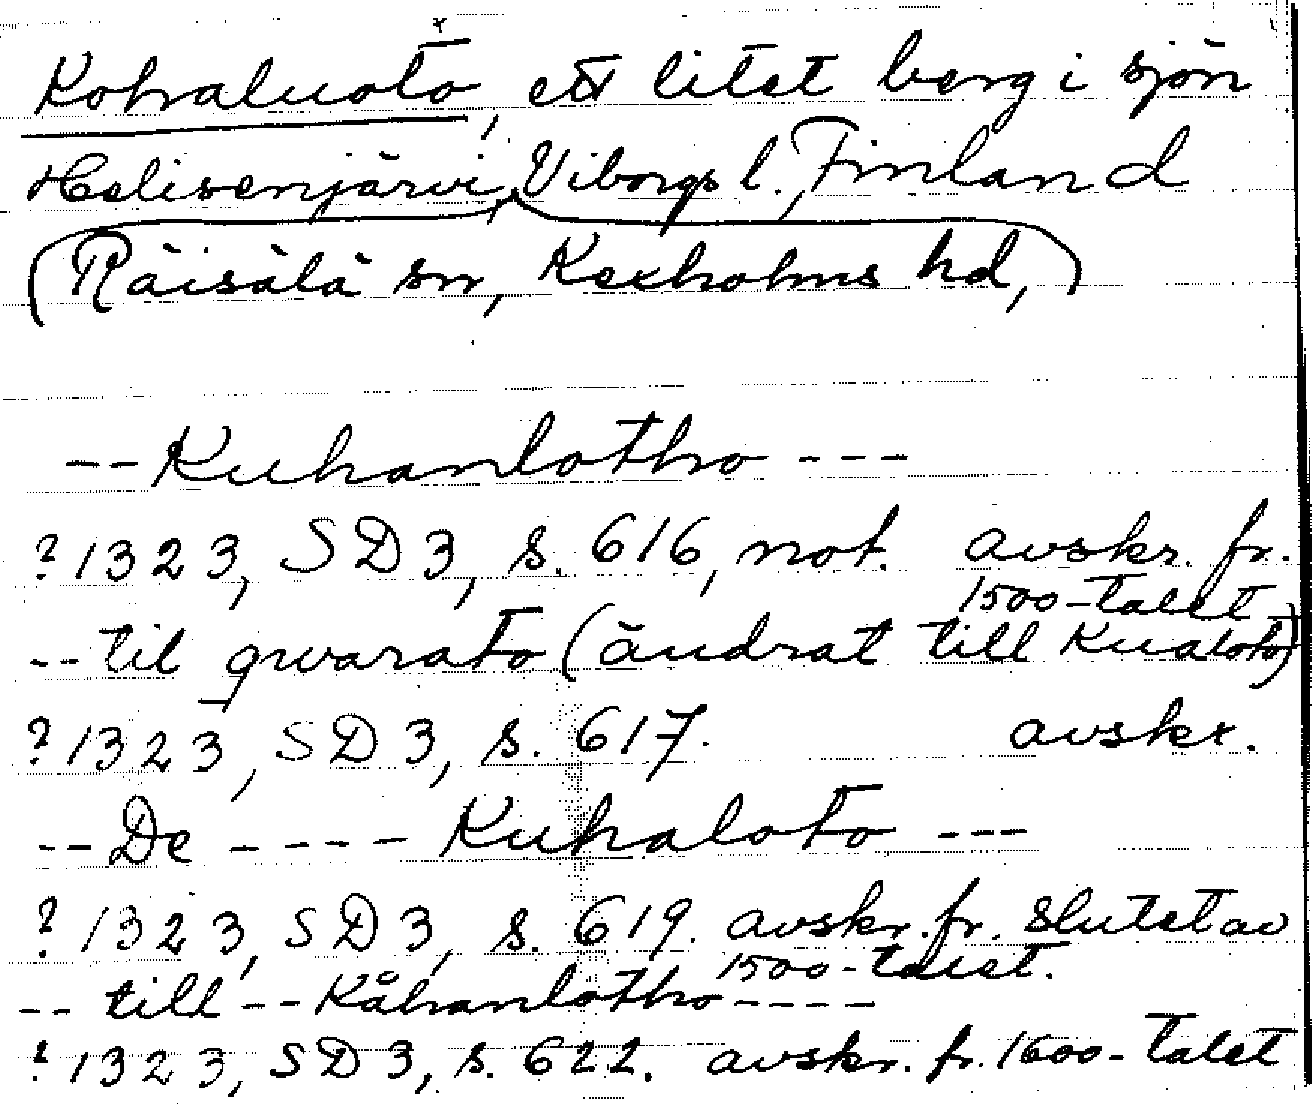 Kohaluoto, ett litet berg i sjön
Helisenjärvi, Viborgs l., Finland
(Räisälä sn, Kexholms hd,)
--Kuhanlotho---
?1323, SD3, s. 616, not. avskr. fr.
1500-talet
--til qwarato (ändrat till Kualoto)
?1323, SD3, s. 617. avskr.
--De ----Kuhaloto ---
?1323, SD3, s. 619. avskr. fr. slutet av
1500-talet.
-- till --Kåhanlotho----
?1323, SD3, s. 622. avskr. fr. 1600-talet